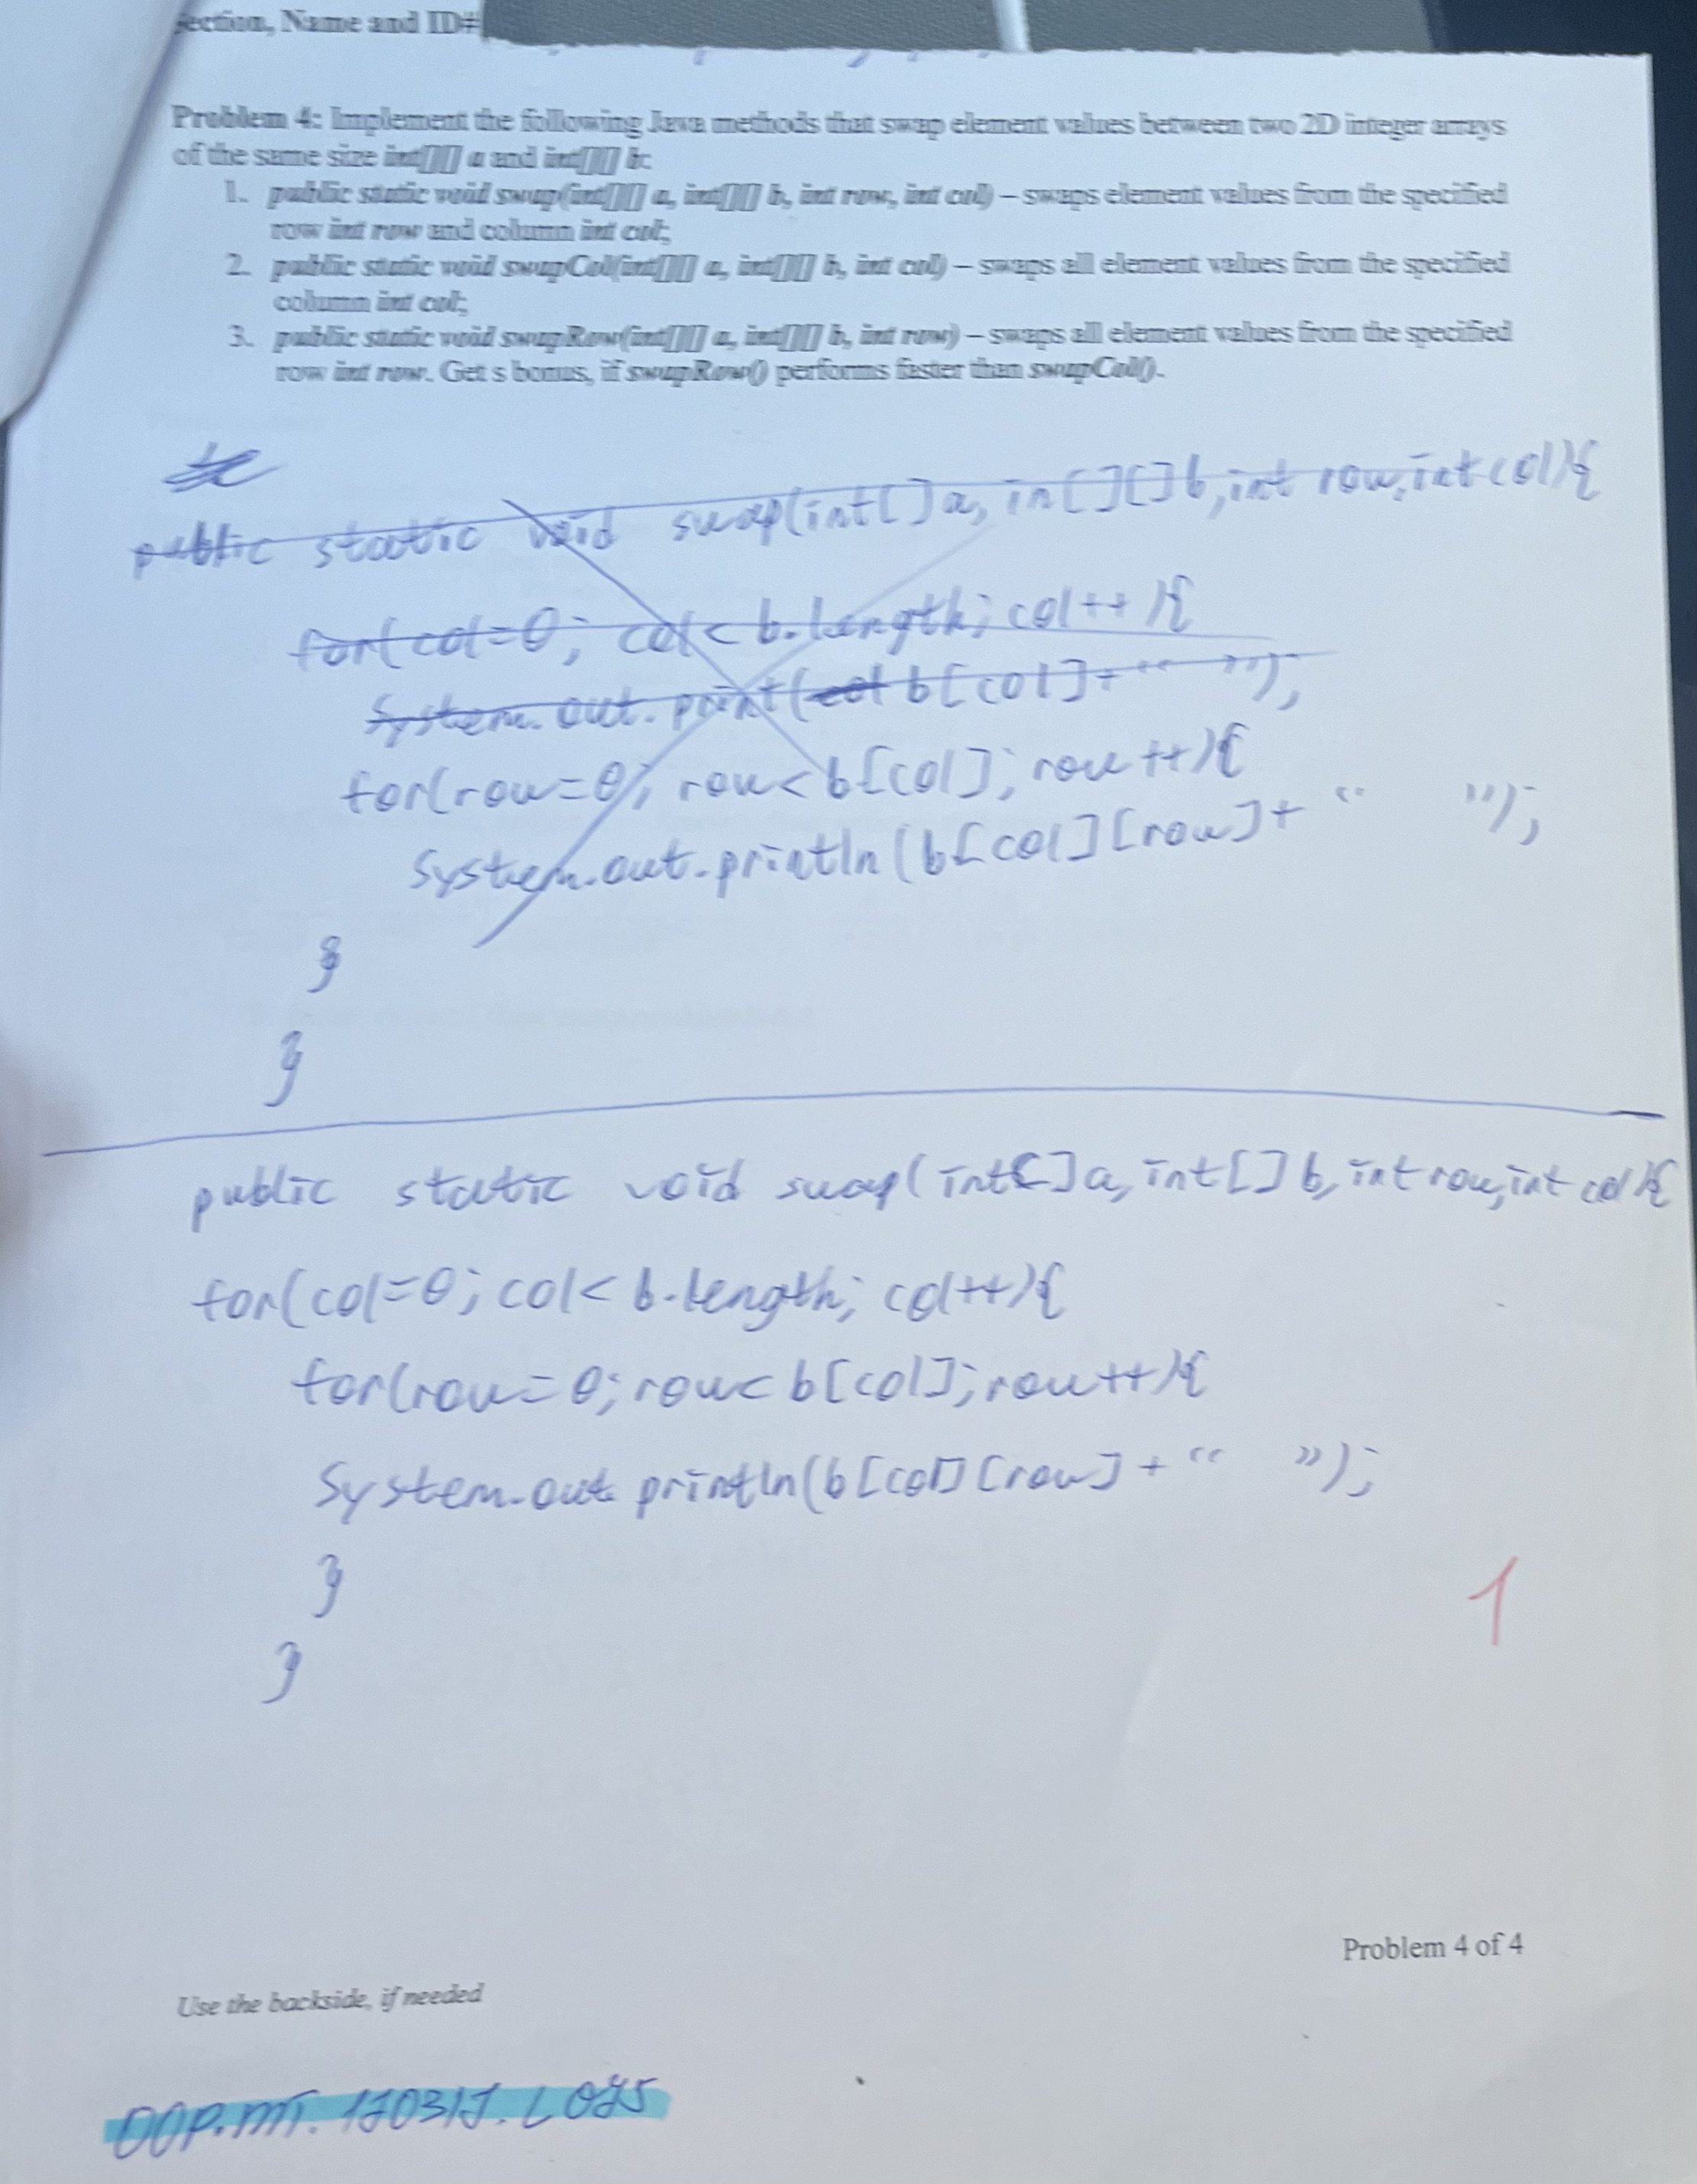 ection, Name and ID#
Problem 4: Implement the following Java methods that swap element values between two 2D integer arrays
of the same size int[][] a and int[][] b:
1. public static void swap(int[][] a, int[][] b, int row, int col) – swaps element values from the specified
row int row and column int col;
2. public static void swapCol(int[][] a, int[][] b, int col) – swaps all element values from the specified
column int col;
3. public static void swapRow(int[][] a, int[][] b, int row) – swaps all element values from the specified
row int row. Get s bonus, if swapRow() performs faster than swapCol().
public static void swap(int[]a, in[][]b,int row,int col){
for(col=0; col<b.length; col++){
System.out.print(col b[col]+" ");
for(row=0; row<b[col]; row++){
System.out.println(b[col][row]+" ");
}
}
public static void swap(int[]a, int[]b, int row, int col){
for(col=0; col<b.length; col++){
for(row=0; row<b[col]; row++){
System.out println(b[col][row]+" ");
}
}
1
Problem 4 of 4
Use the backside, if needed